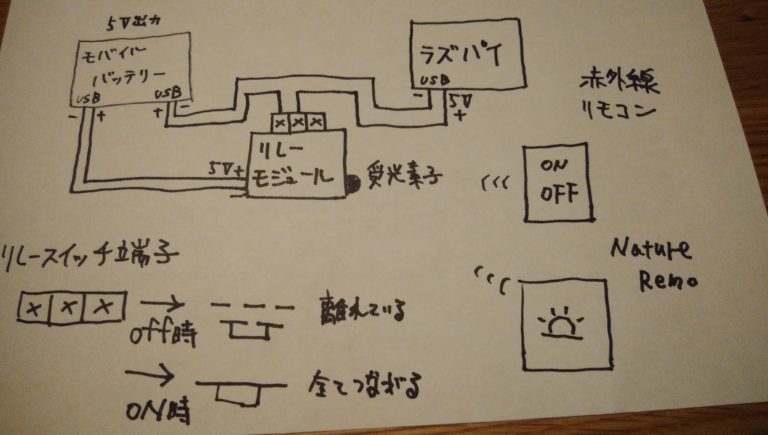 5V出力
モバイル
バッテリー
USB
USB
- +
+ -
ラズパイ
USB
- 5V
+
×××
リレー
モジュール
5V+
-
受光素子
赤外線
リモコン
ON
OFF
Nature
Remo
リレースイッチ端子
××× → 離れている
Off時
→ 全てつながる
ON時